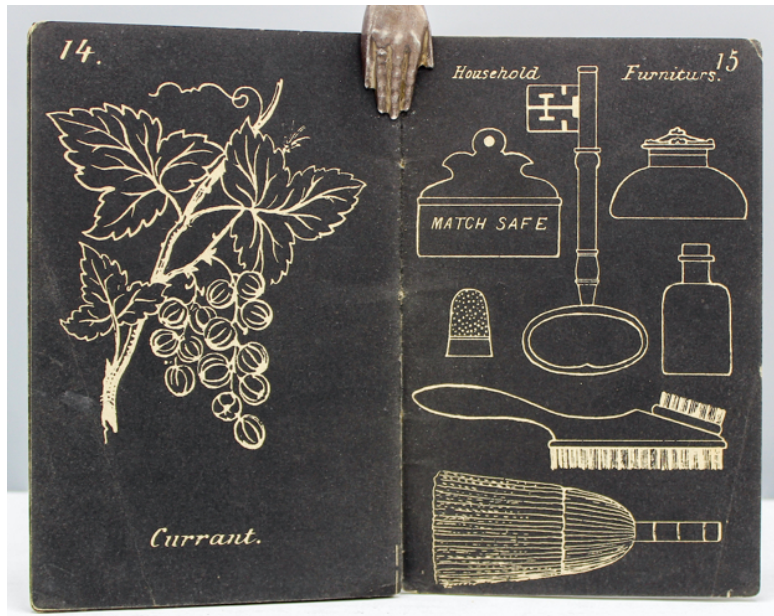 14.
Currant.
15
Household Furniturs.
MATCH SAFE